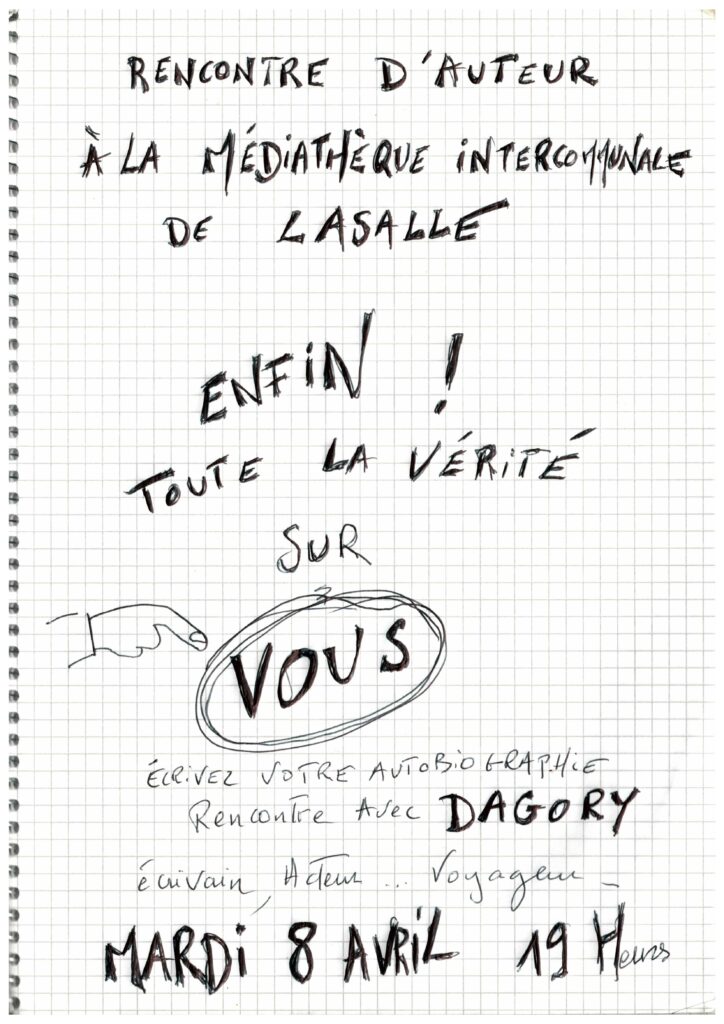 RENCONTRE D'AUTEUR
À LA MÉDIATHÈQUE INTERCOMMUNALE
DE LASALLE
ENFIN !
TOUTE LA VÉRITÉ
SUR
VOUS
ÉCRIVEZ VOTRE AUTOBIOGRAPHIE
Rencontre Avec DAGORY
écrivain, Acteur ... Voyageur _
MARDI 8 AVRIL 19 Heures